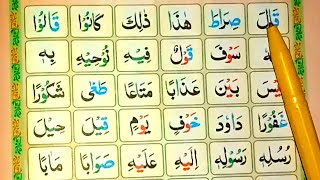 قَالَ صِرَاطَ هٰذَا ذٰلِكَ كَانُوْا قَالُوْا
سَوْفَ قَوْلٌ فِيْهِ نُوْحِيْهِ بِهٖ
بَيْنَ عَذَابًا مَتَاعًا طَغٰى شَكُوْرًا
غَفُوْرًا دَاوٗدَ خَوْفٍ يَوْمٍ قِيْلَ حِيْلَ
رُسُلِهٖ رَسُوْلِهٖ اِلَيْهِ عَلَيْهِ صَوَابًا مَاٰبًا